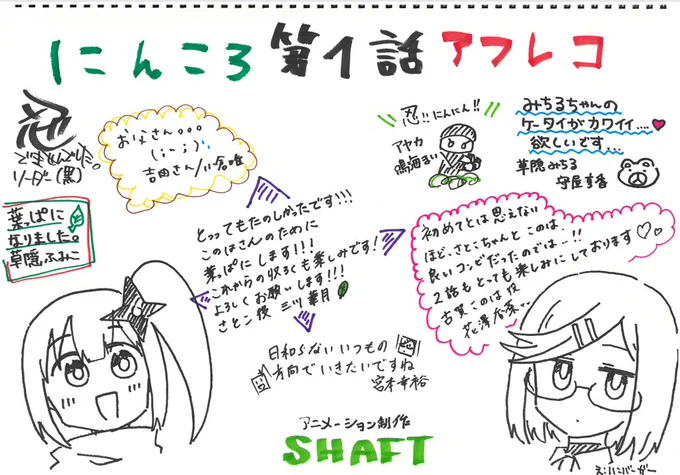 にんころ 第1話 アフレコ
忍
でまとんでした。
リーダー(黒)
お父さん。。。
(;ω;)
吉田さん/
忍!!にんにん!!
アヤカ
鳴海まい
みちるちゃんの
ケータイがカワイイ....
欲しいです...
草隠みちる
守屋亨香
葉っぱに
なりました。
草隠ふみこ
とってもたのしかったです!!!
このはさんのために
葉っぱにします!!!
これからの収ろくも楽しみです!
よろしくお願いします!!!
さとこ役 三川華月
初めてとは思えない
ほど、さとこちゃんとこのは、
良いコンビだったのでは…!!
2話もとっても楽しみにしております♡
古賀このは役
花澤香菜...
日和らないいつもの
方向でいきたいですね
宮本幸裕
アニメーション制作
SHAFT
え:ハンバーガー